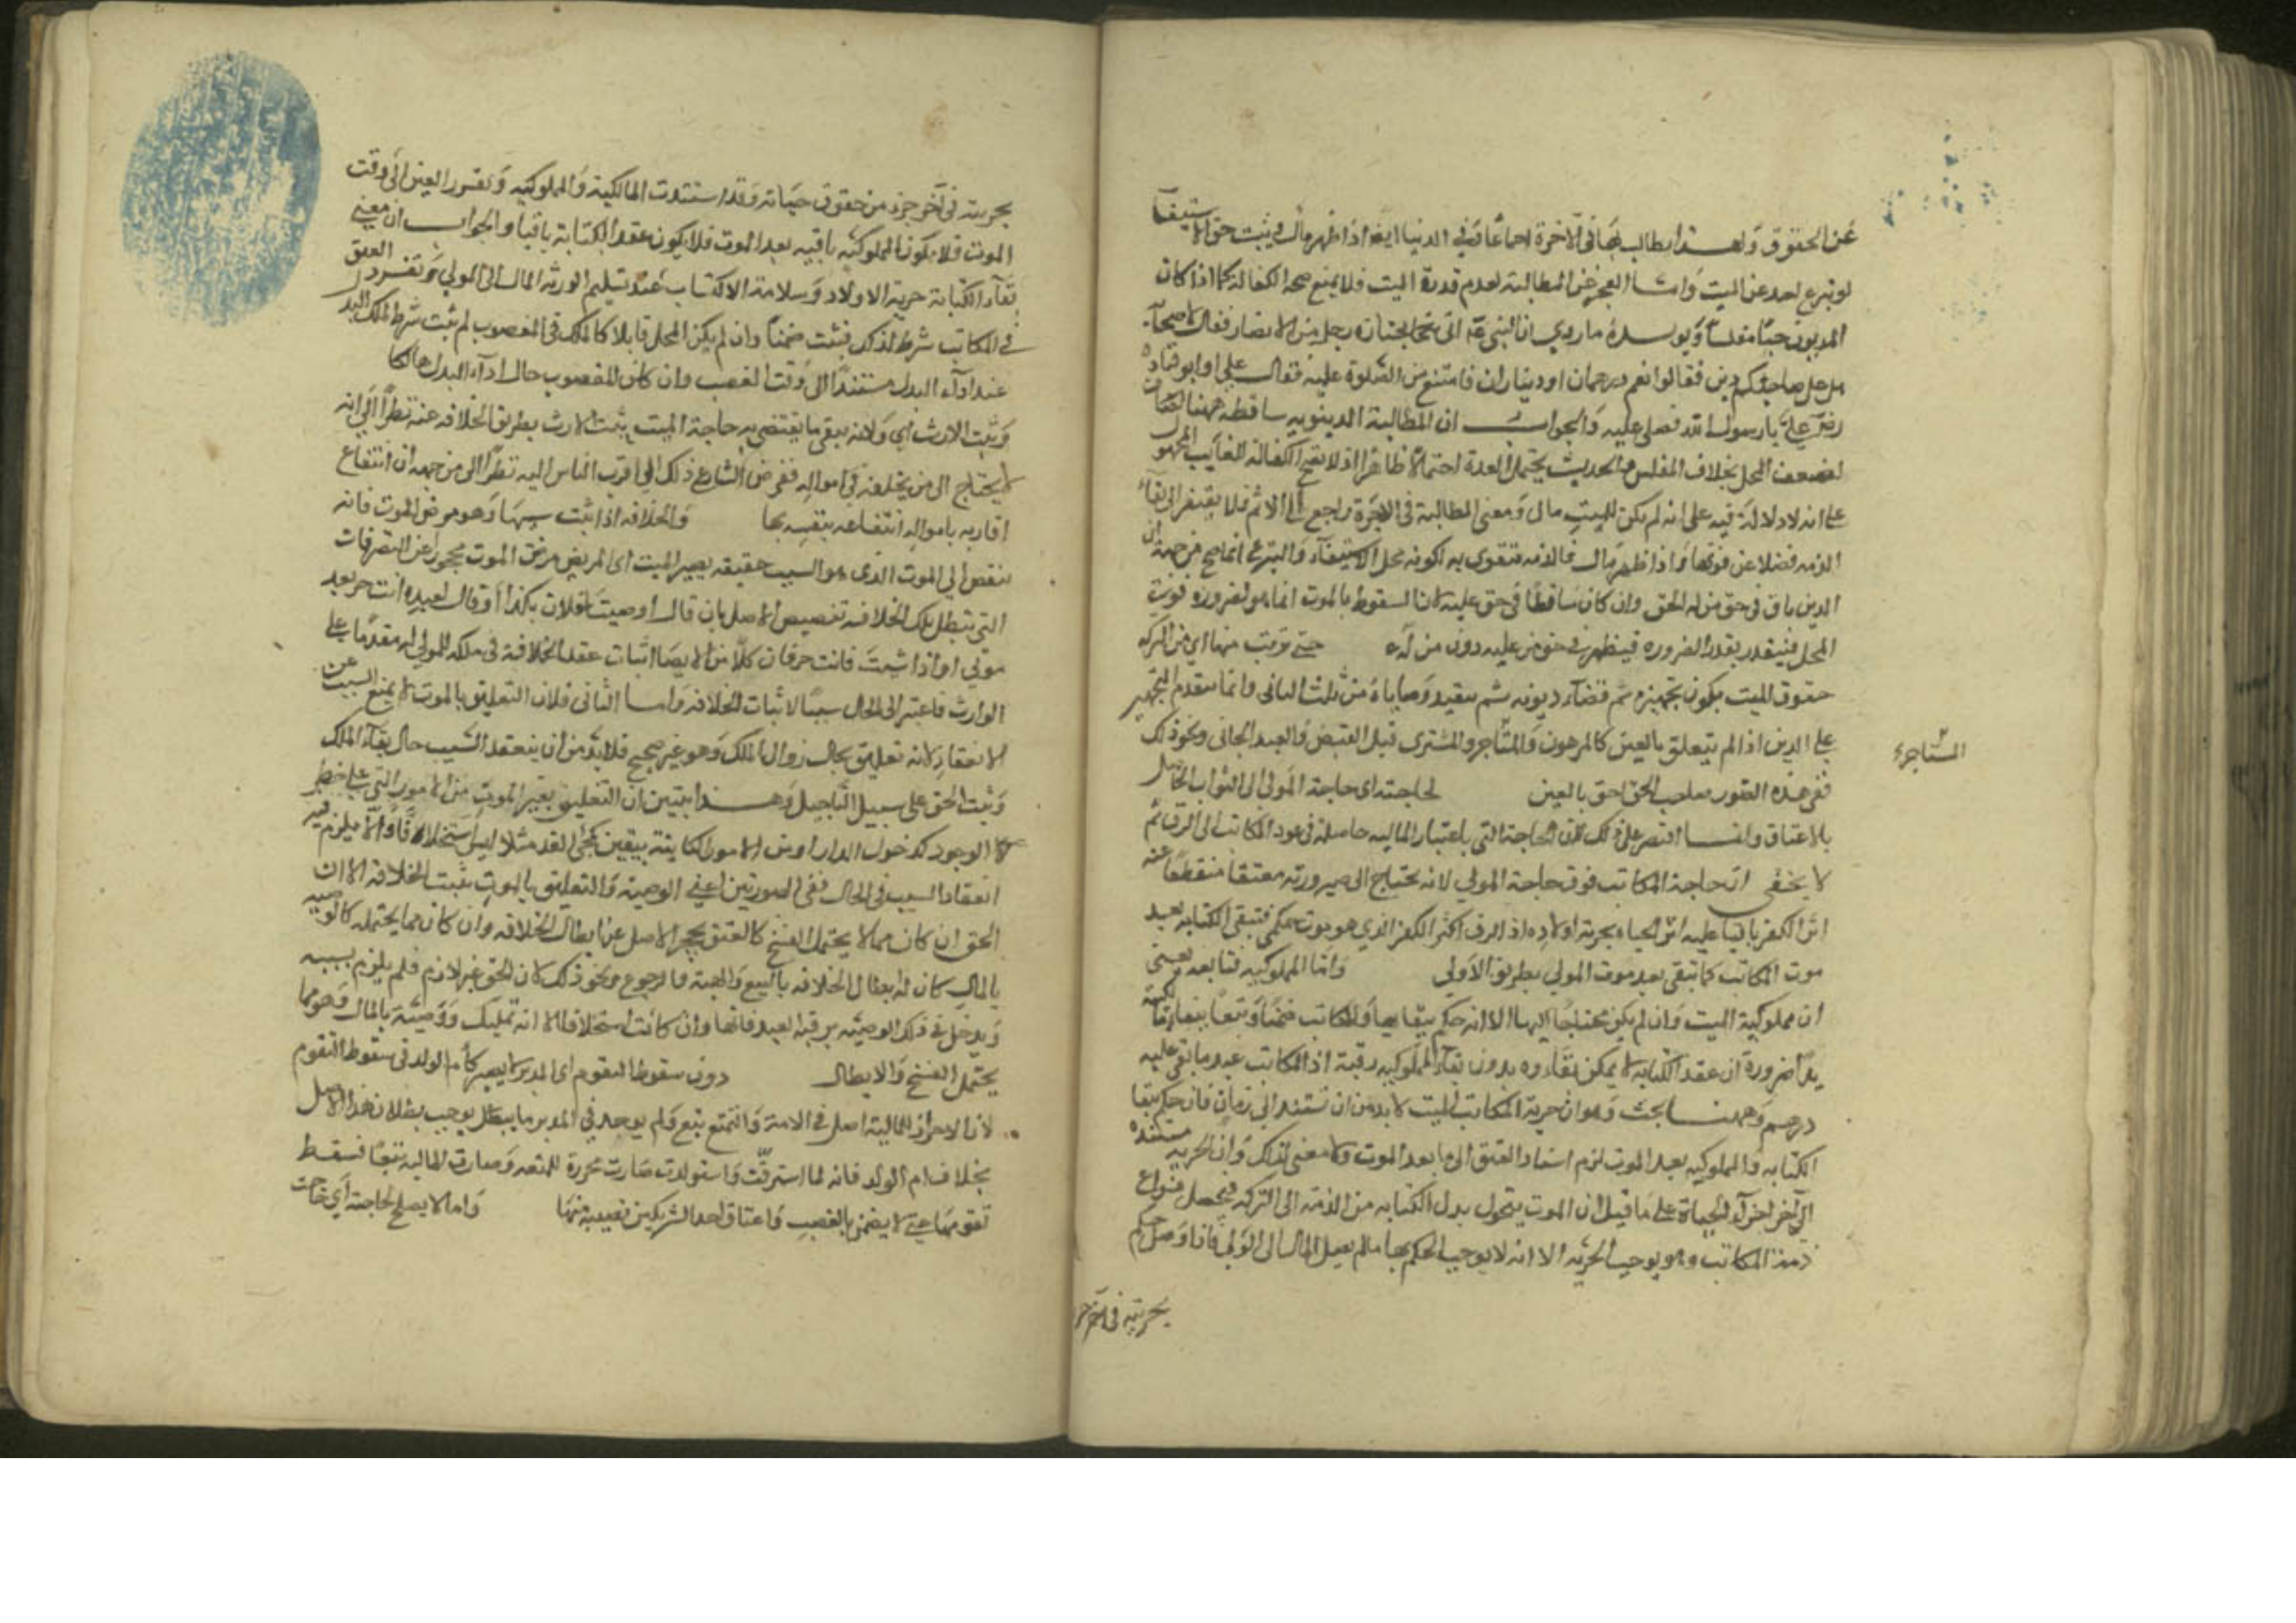 عن الحقوق ولهذا يطالب بها في الآخرة اجماعا وفي الدنيا ايضا اذا ظهر مال ويثبت حق الاستيفاء
لو تبرع احد عن الميت وانما العجز عن المطالبة لعدم قدرة الميت فلا يمنع صحة الكفالة كما اذا كان
المديون حيا مفلسا ويؤيده ما روي ان النبي عم اتي بجنازة رجل من الانصار فقال لاصحابه
هل على صاحبكم دين فقالوا نعم درهمان او ديناران فامتنع من الصلوة عليه فقال علي او ابو قتادة
هما علي يا رسول الله فصلى عليه والجواب ان المطالبة الدينوية ساقطة ههنا
لضعف المحل بخلاف المفلس والحديث يحتمل العدة احتمالا ظاهرا اذ لا تصح الكفالة للغايب المجهول
على انه لا دلالة فيه على انه لم يكن للميت مال ومعنى المطالبة في الآخرة راجع الى الاثم فلا يفتقر الى بقاء
الذمة فضلا عن قوتها واذا ظهر مال فالذمة تتقوى به لكونه محل الاستيفاء والتبرع انما صح من جهة ان
الدين باق في حق من له الحق وان كان ساقطا في حق من عليه لان السقوط بالموت انما هو لضرورة فوت
المحل فيتقدر بقدر الضرورة فيظهر في حق من عليه دون من له حتى ترتب منها اي من التركة
حقوق الميت يكون تجهيزه ثم قضاء ديونه ثم تنفيذ وصاياه من ثلث الباقي وانما يتقدم التجهيز
على الدين اذا لم يتعلق بالعين كالمرهون والمستاجر والمشترى قبل القبض والعبد الجاني ونحو ذلك
المستاجر
ففي هذه الصور صاحب الحق احق بالعين لحاجته اي حاجة المولى الى الثواب الحاصل
بالاعتاق وانما اقتصر على ذلك لان الحاجة التي باعتبار المالية حاصلة في عود المكاتب الى الرق ثم
لا يخفى ان حاجة المكاتب فوق حاجة المولى لانه يحتاج الى صيرورته معتقا منقطعا عنه
اثر الكفر باقيا عليه اثر الحياة بحرية اولاده اذ الرق اثر الكفر الذي هو موت حكمي فتبقى الكتابة بعد
موت المكاتب كما تبقى بعد موت المولى بطريق الاولى واما المملوكية فتابعة يعني
ان مملوكية الميت وان لم يكن محتاجا اليها الا انه حكم ببقائها في المكاتب ضمنا وتبعا لبقاء الكتابة
ضرورة ان عقد الكتابة لا يمكن بقاؤه بدون بقاء المملوكية رقبة اذ المكاتب عبد ما بقي عليه
درهم وههنا بحث وهو ان حرية المكاتب الميت لا بد من ان تستند الى زمان فان حكم ببقاء
الكتابة والمملوكية بعد الموت لزم اسناد العتق الى ما بعد الموت ولا معنى لذلك وان الحرية مستندة
الى آخر اجزاء الحياة على ما قيل ان الموت يتحول بدل الكتابة من الذمة الى التركة فيحصل فراغ
ذمة المكاتب وهو يوجب الحرية الا انه لا يوجب الحكم بها ما لم يصل المال الى المولى فاذا وصل حكم
بحريته في آخر جزء
بحريته في آخر جزء من حقوق حياته وقد استندت المالكية والمملوكية وتقرر العين الى وقت
الموت فلا يكون المملوكية باقية بعد الموت فلا يكون عقد الكتابة باقيا والجواب ان معنى
بقاء الكتابة حرية الاولاد وسلامة الاكتساب عند تسليم الورثة المال الى المولى وتقرر العتق
في المكاتب شرط لذلك فثبت ضمنا وان لم يكن المحل قابلا كالملك في المغصوب لم يثبت شرط الملك البدل
عند اداء البدل مستندا الى وقت الغصب وان كان المغصوب حال اداء البدل هالكا
ويثبت الارث اي ولانه يبقى ما يقتضي به حاجة الميت يثبت الارث بطريق الخلافة عنه نظرا الى انه
يحتاج الى من يخلفه في امواله ففرض الشارع ذلك الى اقرب الناس اليه نظرا الى من جهة ان انتفاع
اقاربه بامواله انتفاعه بنفسه بها والخلافة اذا ثبت سببها وهو مرض الموت فانه
يفضي الى الموت الذي هو السبب حقيقة يصير الميت اي المريض مرض الموت محجورا عن التصرفات
التي تبطل تلك الخلافة تخصيص الاصل بان قال اوصيت لفلان بكذا او قال لعبده انت حر بعد
موتي او اذا مت فانت حر فان كلا من الايصاء اثبات عقد الخلافة في ملكه للموصى له مقدما على
الوارث فاعتبر الى الحال سببا لاثبات الخلافة واما الثاني فلان التعليق بالموت لا يمنع السبب عن
الانعقاد لانه تعليق بحال زوال الملك وهو غير صحيح فلا بد من ان ينعقد السبب حال بقاء الملك
ويثبت الحق على سبيل التاجيل وهذا يتبين ان التعليق بغير الموت من الامور التي على خطر
الوجود كدخول الدار او من الامور الكاينة بيقين كمجئ الغد مثلا ليس استخلافا والا يلزم فيه
انعقاد السبب في الحال ففي الصورتين اعني الوصية والتعليق بالموت يثبت الخلافة الا ان
الحق ان كان مما لا يحتمل الفسخ كالعتق يحجر الاصل عن ابطال الخلافة وان كان مما يحتمله كالوصية
بالمال كان له ابطال الخلافة بالبيع والهبة والرجوع ونحو ذلك لان الحق غير لازم فلم يلزم بسببه
ويدخل في ذلك الوصية برقبة العبد فانها وان كانت استخلافا الا انه تمليك ووصية بالمال وهو مما
يحتمل الفسخ والابطال دون سقوط التقوم اي المدبر لا يصير كام الولد في سقوط التقوم
لان الاحراز للمالية اصل في الامة والتمتع تبع ولم يوجد في المدبر ما يبطل يوجب بطلان هذا الاصل
بخلاف ام الولد فانه لما استرقت واستولدت صارت محرزة للمتعة وصارت المالية تبعا فسقط
تقومها حتى لا يضمن بالغصب واعتاق احد الشريكين نصيبه منها واما لا يصلح لحاجته اي حاجة